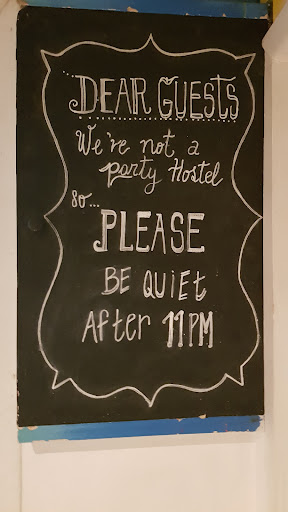 DEAR GUESTS
We're not a
party Hostel
so...
PLEASE
BE QUIET
After 11PM